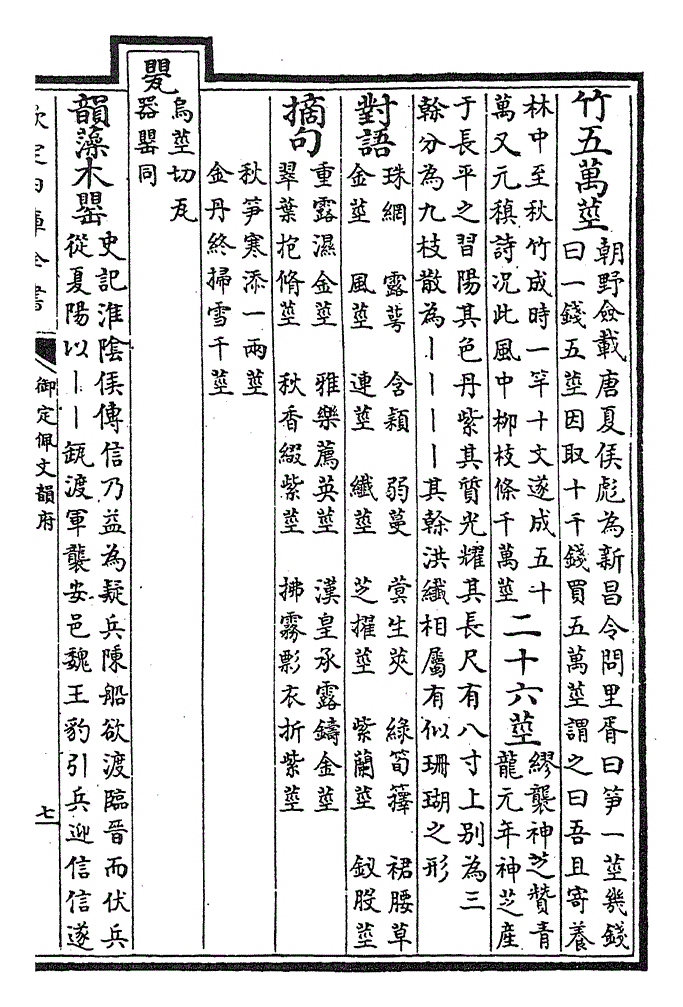 竹五萬莖
朝野僉載唐夏侯彪為新昌令問里胥曰笋一莖幾錢
曰一錢五莖因取十千錢買五萬莖謂之曰吾且寄養
林中至秋竹成時一竿十文遂成五十
萬又元稹詩况此風中柳枝條千萬莖
二十六莖
繆襲神芝贊青
龍元年神芝産
于長平之習陽其色丹紫其質光耀其長尺有八寸上别為三
榦分為九枝散為丨丨丨丨其榦洪纖相屬有似珊瑚之形
對語
珠網 露蕚 含穎 弱蔓 蓂生莢 緑筍籜 裙腰草
金莖 風莖 連莖 纖莖 芝擢莖 紫蘭莖 釵股莖
摘句
重露濕金莖 雅樂薦英莖 漢皇承露鑄金莖
翠葉抱脩莖 秋香綴紫莖 拂霧彯衣折紫莖
秋笋寒添一兩莖
金丹終掃雪千莖
甖
烏莖切瓦
器罌同
韻藻
木罌
史記淮隂侯傳信乃益為疑兵陳船欲渡臨晉而伏兵
從夏陽以丨丨缻渡軍襲安邑魏王豹引兵迎信信遂
欽定四庫全書
御定佩文韻府
七